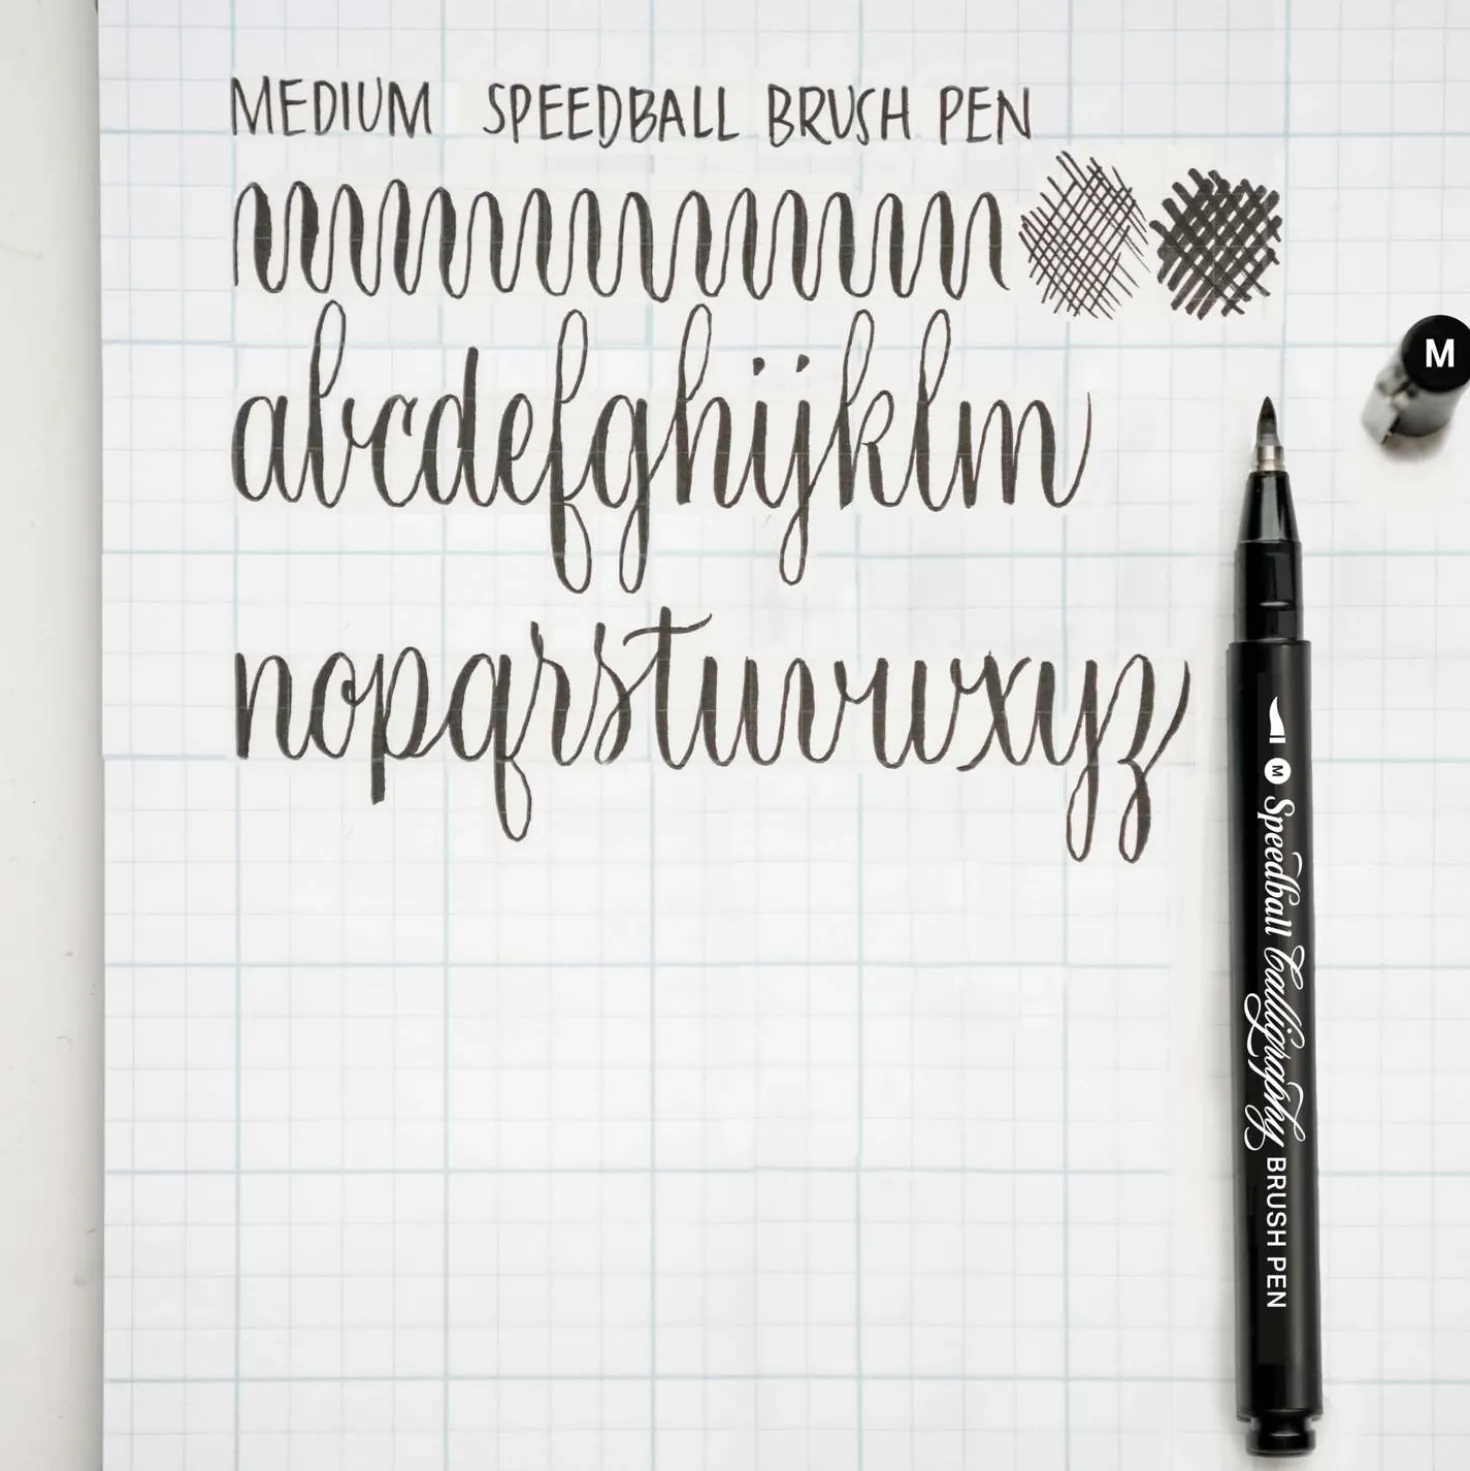 MEDIUM SPEEDBALL BRUSH PEN
abcdefghijklm
nopqrstuvwxyz
M
M Speedball Calligraphy BRUSH PEN